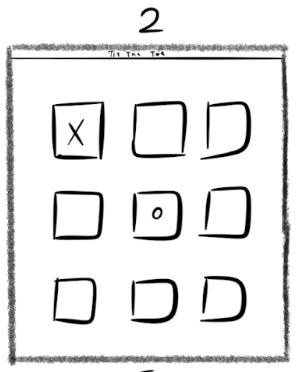 2
Tic Tac Toe
X
o